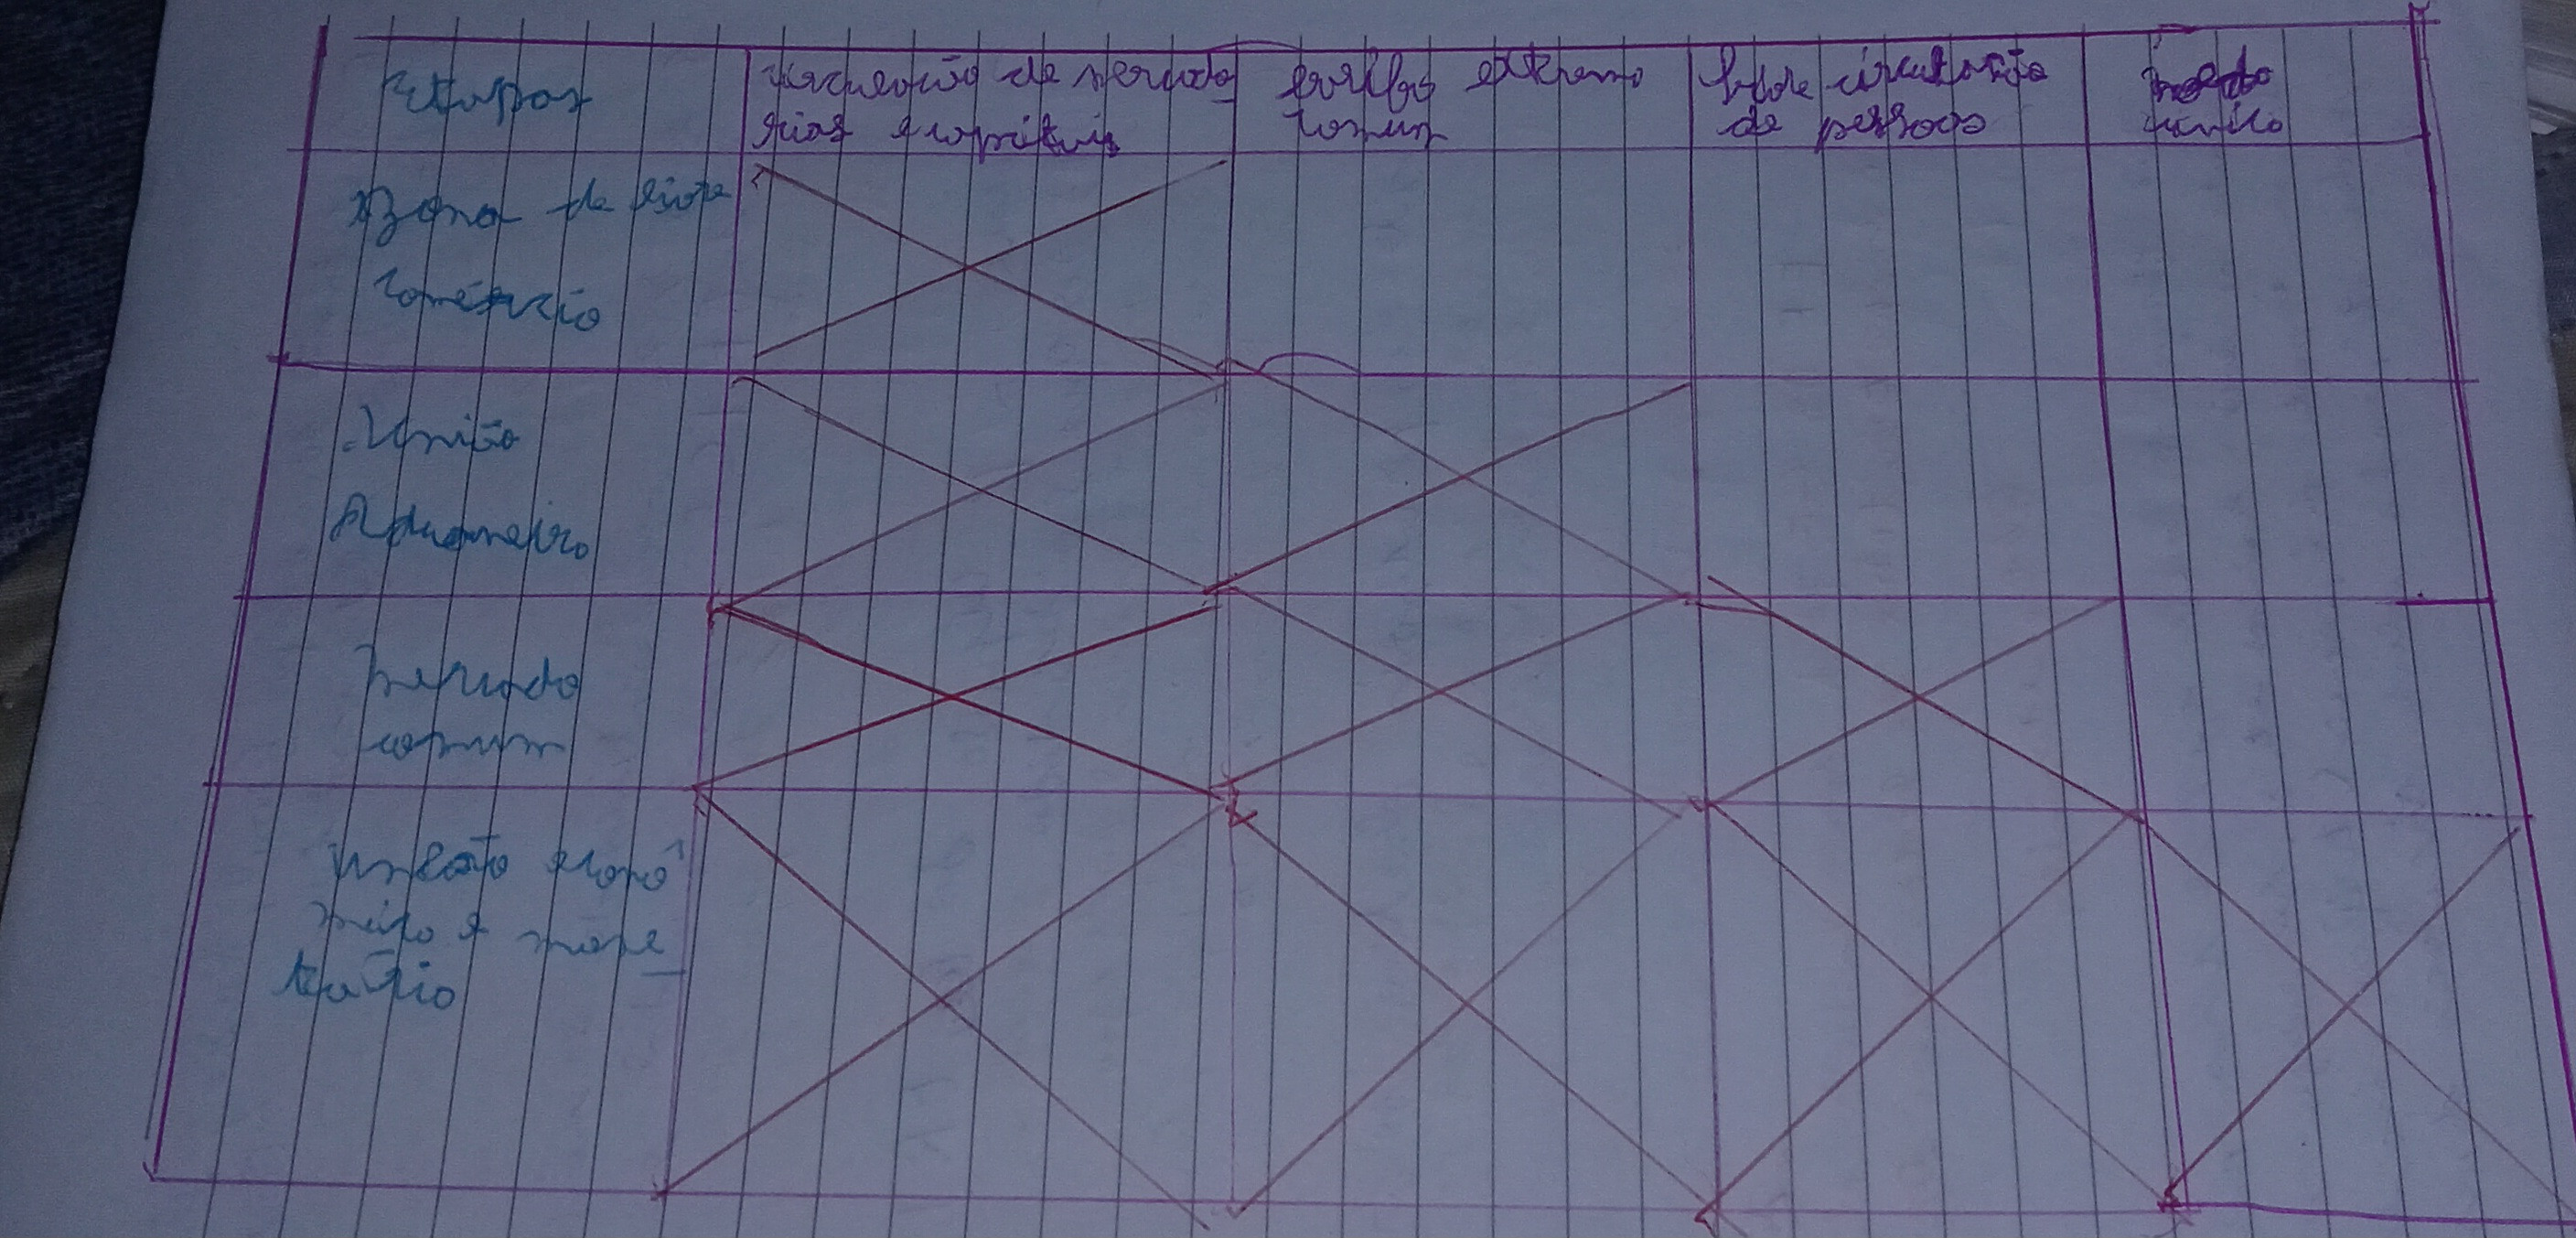 Etapas
circulação de mercado
rias e capitais
tarifa externa
comum
livre circulação
de pessoas
moeda
único
Zona de livre
comércio
União
Aduaneiro
mercado
comum
União econô
mico e mone
tário